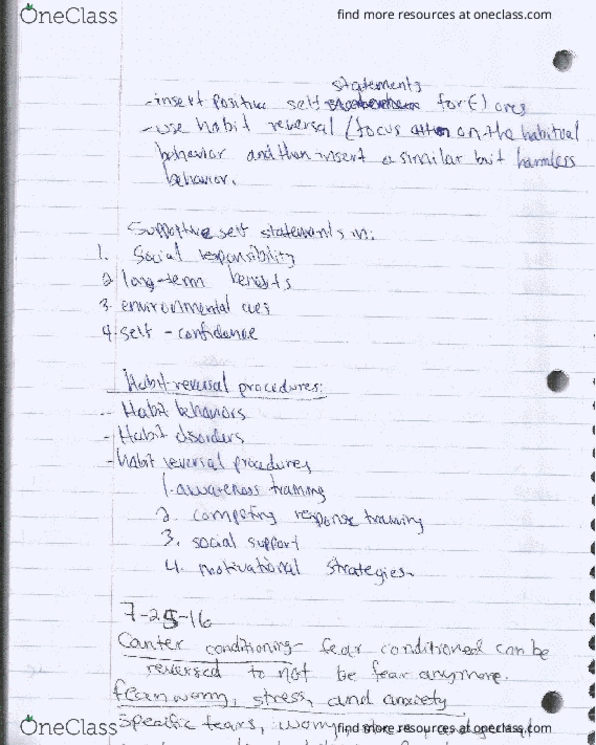 OneClass
find more resources at oneclass.com
statements
-insert positive self for (-) ones
-use habit reversal (focus on the habitual
behavior and then insert a similar but harmless
behavior.
Supportive self statements in:
1. Social responsibility
2 long-term benefits
3. environmental cues
4. self-confidence
Habit-reversal procedures:
- Habit behaviors
- Habit disorders
- Habit reversal procedures
1. awareness training
2. competing response training
3. social support
4. motivational strategies.
7-25-16
Counter conditioning- fear conditioned can be
reversed to not be fear anymore.
fear, worry, stress, and anxiety
OneClass
Specific fears, worry
find more resources at oneclass.com